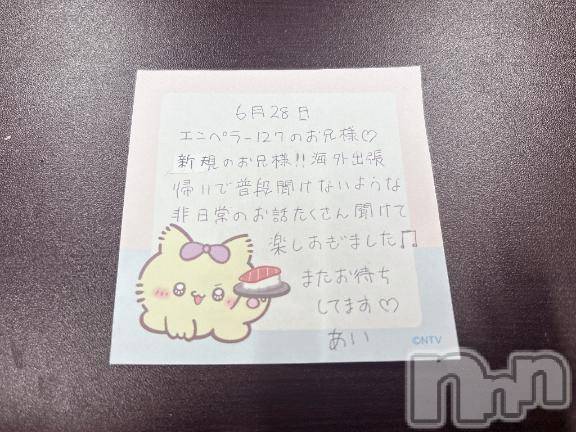 6月28日
エンペラー127のお兄様♡
新規のお兄様!!海外出張
帰りで普段聞けないような
非日常のお話たくさん聞けて
楽しすぎました♫
またお待ち
してます♡
あい
©NTV
nnn